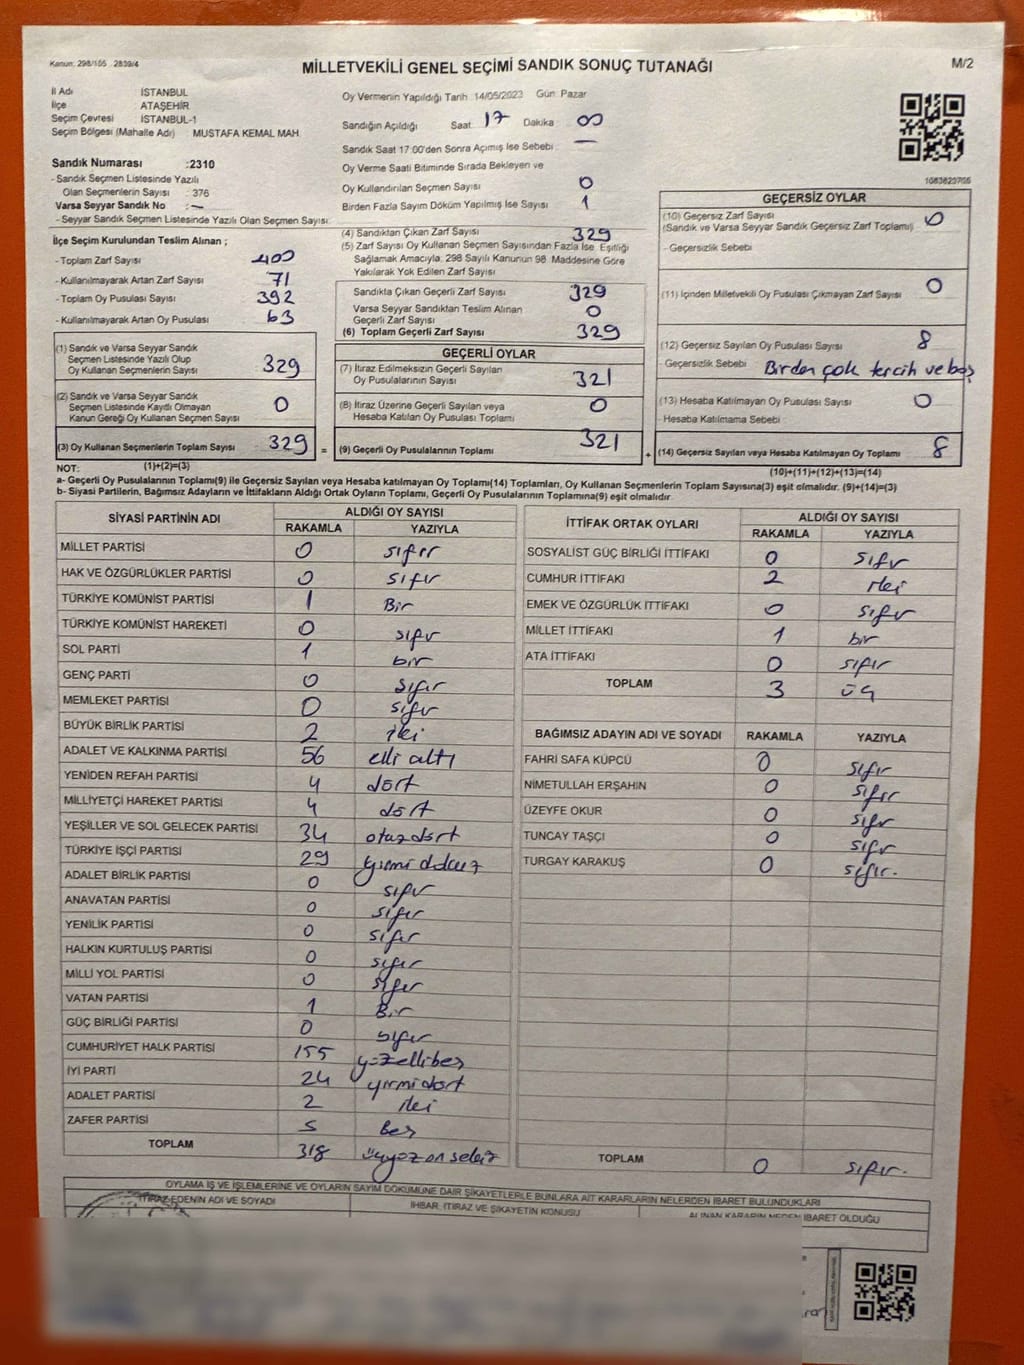 Kanun: 298/105 2839/4
MİLLETVEKİLİ GENEL SEÇİMİ SANDIK SONUÇ TUTANAĞI
M/2
İl Adı İSTANBUL
İlçe ATAŞEHİR
Seçim Çevresi İSTANBUL-1
Seçim Bölgesi (Mahalle Adı) : MUSTAFA KEMAL MAH.
Sandık Numarası :2310
- Sandık Seçmen Listesinde Yazılı
Olan Seçmenlerin Sayısı : 376
Varsa Seyyar Sandık No : —
- Seyyar Sandık Seçmen Listesinde Yazılı Olan Seçmen Sayısı:
Oy Vermenin Yapıldığı Tarih :14/05/2023 Gün: Pazar
Sandığın Açıldığı Saat: 17 Dakika : 00
Sandık Saat 17:00'den Sonra Açımış İse Sebebi : —
Oy Verme Saati Bitiminde Sırada Bekleyen ve
Oy Kullandırılan Seçmen Sayısı 0
Birden Fazla Sayım Döküm Yapılmış İse Sayısı 1
1083823705
İlçe Seçim Kurulundan Teslim Alınan ;
- Toplam Zarf Sayısı 400
- Kullanılmayarak Artan Zarf Sayısı : 71
- Toplam Oy Pusulası 392
- Kullanılmayarak Artan Oy Pusulası 63
(1) Sandık ve Varsa Seyyar Sandık
Seçmen Listesinde Yazılı Olup
Oy Kullanan Seçmenlerin Sayısı 329
(2) Sandık ve Varsa Seyyar Sandık
Seçmen Listesinde Kayıtlı Olmayan
Kanun Gereği Oy Kullanan Seçmen Sayısı 0
(3) Oy Kullanan Seçmenlerin Toplam Sayısı 329 =
(1)+(2)=(3)
(4) Sandıktan Çıkan Zarf Sayısı 329
(5) Zarf Sayısı Oy Kullanan Seçmen Sayısından Fazla İse, Eşitliği
Sağlamak Amacıyla, 298 Sayılı Kanunun 98. Maddesine Göre
Yakılarak Yok Edilen Zarf Sayısı
Sandıkta Çıkan Geçerli Zarf Sayısı 329
Varsa Seyyar Sandıktan Teslim Alınan
Geçerli Zarf Sayısı 0
(6) Toplam Geçerli Zarf Sayısı 329
GEÇERLİ OYLAR
(7) İtiraz Edilmeksizin Geçerli Sayılan
Oy Pusulalarının Sayısı 321
(8) İtiraz Üzerine Geçerli Sayılan veya
Hesaba Katılan Oy Pusulası Toplamı 0
(9) Geçerli Oy Pusulalarının Toplamı 321 +
GEÇERSİZ OYLAR
(10) Geçersiz Zarf Sayısı 0
(Sandık ve Varsa Seyyar Sandık Geçersiz Zarf Toplamı)
- Geçersizlik Sebebi
(11) İçinden Milletvekili Oy Pusulası Çıkmayan Zarf Sayısı 0
(12) Geçersiz Sayılan Oy Pusulası Sayısı 8
- Geçersizlik Sebebi : Birden çok tercih ve boş
(13) Hesaba Katılmayan Oy Pusulası Sayısı 0
- Hesaba Katılmama Sebebi
(14) Geçersiz Sayılan veya Hesaba Katılmayan Oy Toplamı 8
(10)+(11)+(12)+(13)=(14)
NOT:
a- Geçerli Oy Pusulalarının Toplamı(9) ile Geçersiz Sayılan veya Hesaba katılmayan Oy Toplamı(14) Toplamları, Oy Kullanan Seçmenlerin Toplam Sayısına(3) eşit olmalıdır. (9)+(14)=(3)
b- Siyasi Partilerin, Bağımsız Adayların ve İttifakların Aldığı Ortak Oyların Toplamı, Geçerli Oy Pusulalarının Toplamına(9) eşit olmalıdır
SİYASİ PARTİNİN ADI ALDIĞI OY SAYISI
RAKAMLA YAZIYLA
MİLLET PARTİSİ 0 sıfır
HAK VE ÖZGÜRLÜKLER PARTİSİ 0 sıfır
TÜRKİYE KOMÜNİST PARTİSİ 1 Bir
TÜRKİYE KOMÜNİST HAREKETİ 0 sıfır
SOL PARTİ 1 bir
GENÇ PARTİ 0 sıfır
MEMLEKET PARTİSİ 0 sıfır
BÜYÜK BİRLİK PARTİSİ 2 iki
ADALET VE KALKINMA PARTİSİ 56 elli altı
YENİDEN REFAH PARTİSİ 4 dört
MİLLİYETÇİ HAREKET PARTİSİ 4 dört
YEŞİLLER VE SOL GELECEK PARTİSİ 34 otuzdört
TÜRKİYE İŞÇİ PARTİSİ 29 yirmi dokuz
ADALET BİRLİK PARTİSİ 0 sıfır
ANAVATAN PARTİSİ 0 sıfır
YENİLİK PARTİSİ 0 sıfır
HALKIN KURTULUŞ PARTİSİ 0 sıfır
MİLLİ YOL PARTİSİ 0 sıfır
VATAN PARTİSİ 1 Bir
GÜÇ BİRLİĞİ PARTİSİ 0 sıfır
CUMHURİYET HALK PARTİSİ 155 yüzellibeş
İYİ PARTİ 24 yirmidört
ADALET PARTİSİ 2 iki
ZAFER PARTİSİ 5 beş
TOPLAM 318 üçyüz on sekiz
İTTİFAK ORTAK OYLARI ALDIĞI OY SAYISI
RAKAMLA YAZIYLA
SOSYALİST GÜÇ BİRLİĞİ İTTİFAKI 0 sıfır
CUMHUR İTTİFAKI 2 iki
EMEK VE ÖZGÜRLÜK İTTİFAKI 0 sıfır
MİLLET İTTİFAKI 1 bir
ATA İTTİFAKI 0 sıfır
TOPLAM 3 üç
BAĞIMSIZ ADAYIN ADI VE SOYADI RAKAMLA YAZIYLA
FAHRİ SAFA KÜPCÜ 0 sıfır
NİMETULLAH ERŞAHİN 0 sıfır
ÜZEYFE OKUR 0 sıfır
TUNCAY TAŞÇI 0 sıfır
TURGAY KARAKUŞ 0 sıfır.
TOPLAM 0 sıfır.
OYLAMA İŞ VE İŞLEMLERİNE VE OYLARIN SAYIM DÖKÜMÜNE DAİR ŞİKAYETLERLE BUNLARA AİT KARARLARIN NELERDEN İBARET BULUNDUKLARI
İTİRAZ EDENİN ADI VE SOYADI İHBAR, İTİRAZ VE ŞİKAYETİN KONUSU ALINAN KARARIN NEDEN İBARET OLDUĞU